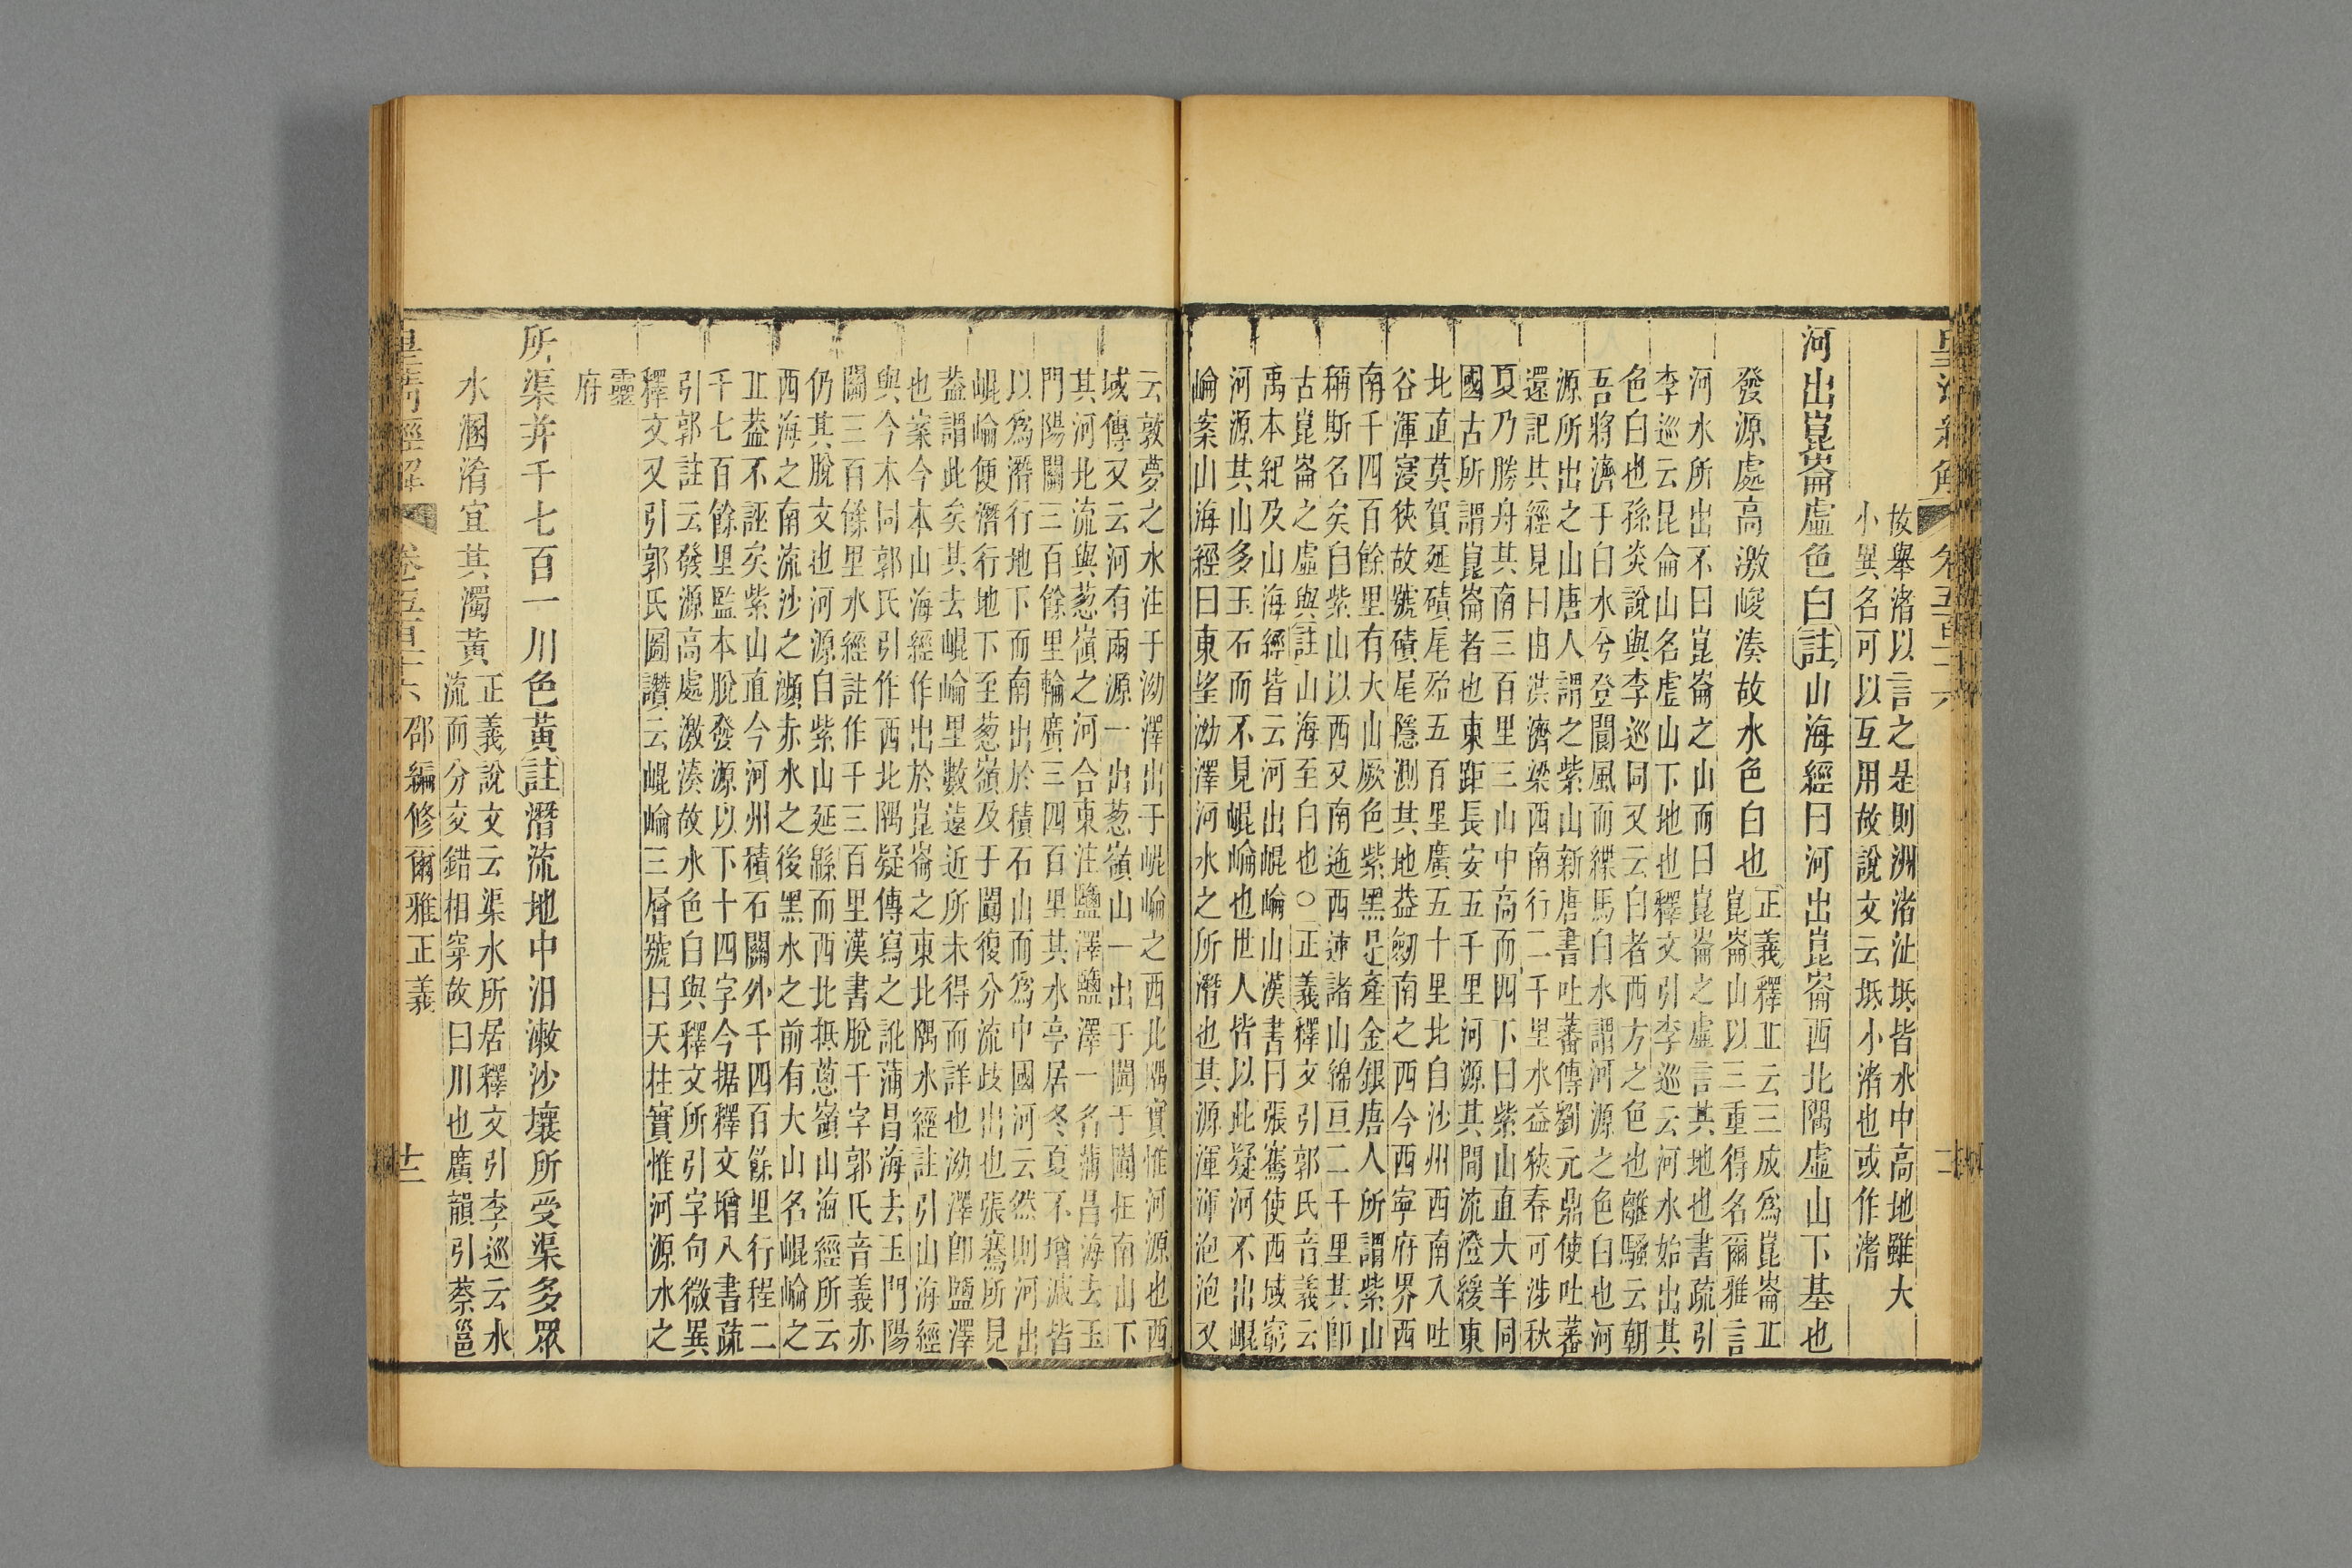 故舉渚以言之是則洲渚沚坻皆水中高地雖大
小異名可以互用故說文云坻小渚也或作渚
河出崑崙虛色白註山海經曰河出崑崙西北隅虛山下基也
發源處高激峻湊故水色白也
正義釋丠云三成為崑崙丠
崑崙山以三重得名爾雅言
河水所出不曰崑崙之山而曰崑崙之虛言其地也書疏引
李巡云昆侖山名虛山下地也釋文引李巡云河水始出其
色白也孫炎說與李巡同又云白者西方之色也離騷云朝
吾將濟于白水兮登閬風而緤馬白水謂河源之色白也河
源所出之山唐人謂之紫山新唐書吐蕃傳劉元鼎使吐蕃
還記其經見曰由洪濟梁西南行二千里水益狹春可涉秋
夏乃勝舟其南三百里三山中高而四下曰紫山直大羊同
國古所謂崑崙者也東距長安五千里河源其閒流澄緩東
北直莫賀延磧尾殆五百里廣五十里北自沙州西南入吐
谷渾寖狹故號磧尾隱測其地葢劒南之西今西寧府界西
南千四百餘里有大山厥色紫黑是產金銀唐人所謂紫山
稱斯名矣自紫山以西又南迤西連諸山綿亘二千里其卽
古崑崙之虛與註山海至白也○正義釋文引郭氏音義云
禹本紀及山海經皆云河出崐崘山漢書曰張騫使西域窮
河源其山多玉石而不見崐崘也世人皆以此疑河不出崐
崘案山海經曰東望泑澤河水之所潛也其源渾渾泡泡又
云敦夢之水注于泑澤出于崐崘之西北隅實惟河源也西
域傳又云河有兩源一出葱嶺山一出于闐于闐在南山下
其河北流與葱嶺之河合東注鹽澤鹽澤一名蒲昌海去玉
門陽關三百餘里輪廣三四百里其水亭居冬夏不增減皆
以為潛行地下而南出於積石山而為中國河云然則河出
崐崘便潛行地下至葱嶺及于闐復分流歧出也張騫所見
葢謂此矣其去崐崘里數遠近所未得而詳也泑澤卽鹽澤
也案今本山海經作出於崑崙之東北隅水經註引山海經
與今本同郭氏引作西北隅疑傳寫之訛蒲昌海去玉門陽
關三百餘里水經註作千三百里漢書脫千字郭氏音義亦
仍其脫文也河源自紫山延緜而西北抵蔥嶺山海經所云
西海之南流沙之瀕赤水之後黑水之前有大山名崐崘之
丠葢不誣矣紫山直今河州積石關外千四百餘里行程二
千七百餘里監本脫發源以下十四字今据釋文增入書疏
引郭註云發源高處激湊故水色白與釋文所引字句微異
釋文又引郭氏圖讚云崐崘三層號曰天柱實惟河源水之
靈
府
所渠并千七百一川色黃註潛流地中汨漱沙壤所受渠多眾
水溷淆宜其濁黃
正義說文云渠水所居釋文引李巡云水
流而分交錯相穿故曰川也廣韻引蔡邕
皇清經解 卷五百十六 邵編修爾雅正義